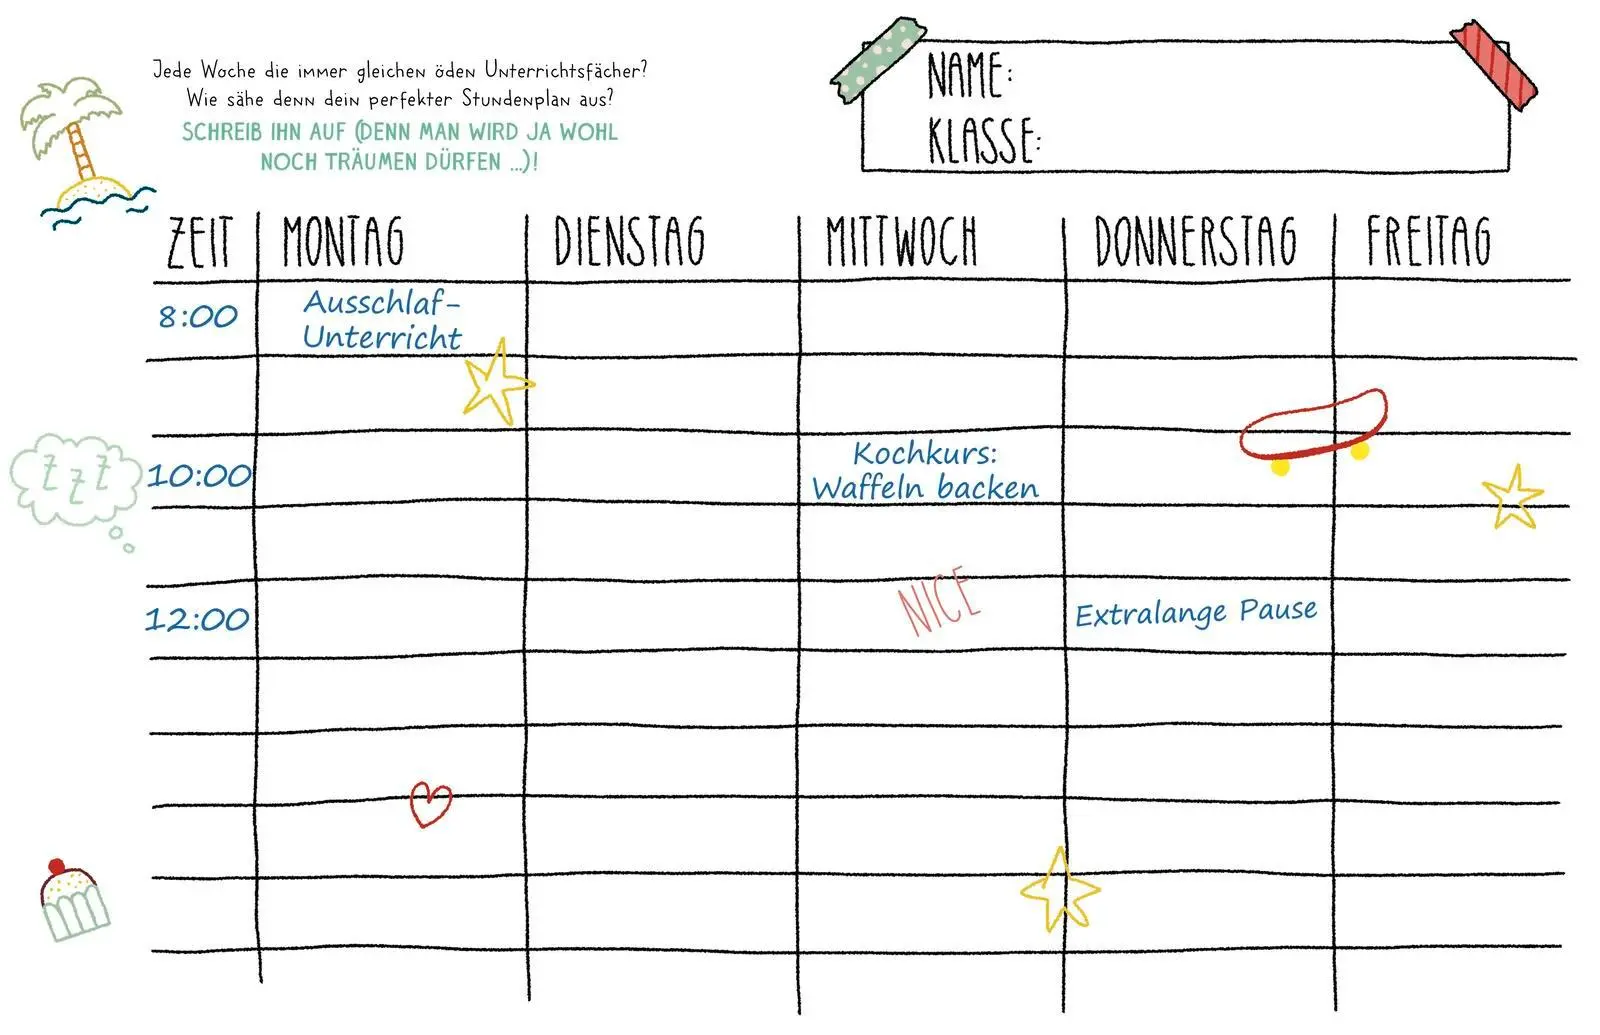 Jede Woche die immer gleichen öden Unterrichtsfächer?
Wie sähe denn dein perfekter Stundenplan aus?
SCHREIB IHN AUF (DENN MAN WIRD JA WOHL
NOCH TRÄUMEN DÜRFEN ...)!
NAME:
KLASSE:
ZEIT MONTAG DIENSTAG MITTWOCH DONNERSTAG FREITAG
8:00 Ausschlaf-
Unterricht
Kochkurs:
10:00 Waffeln backen
Z Z Z
NICE
12:00 Extralange Pause